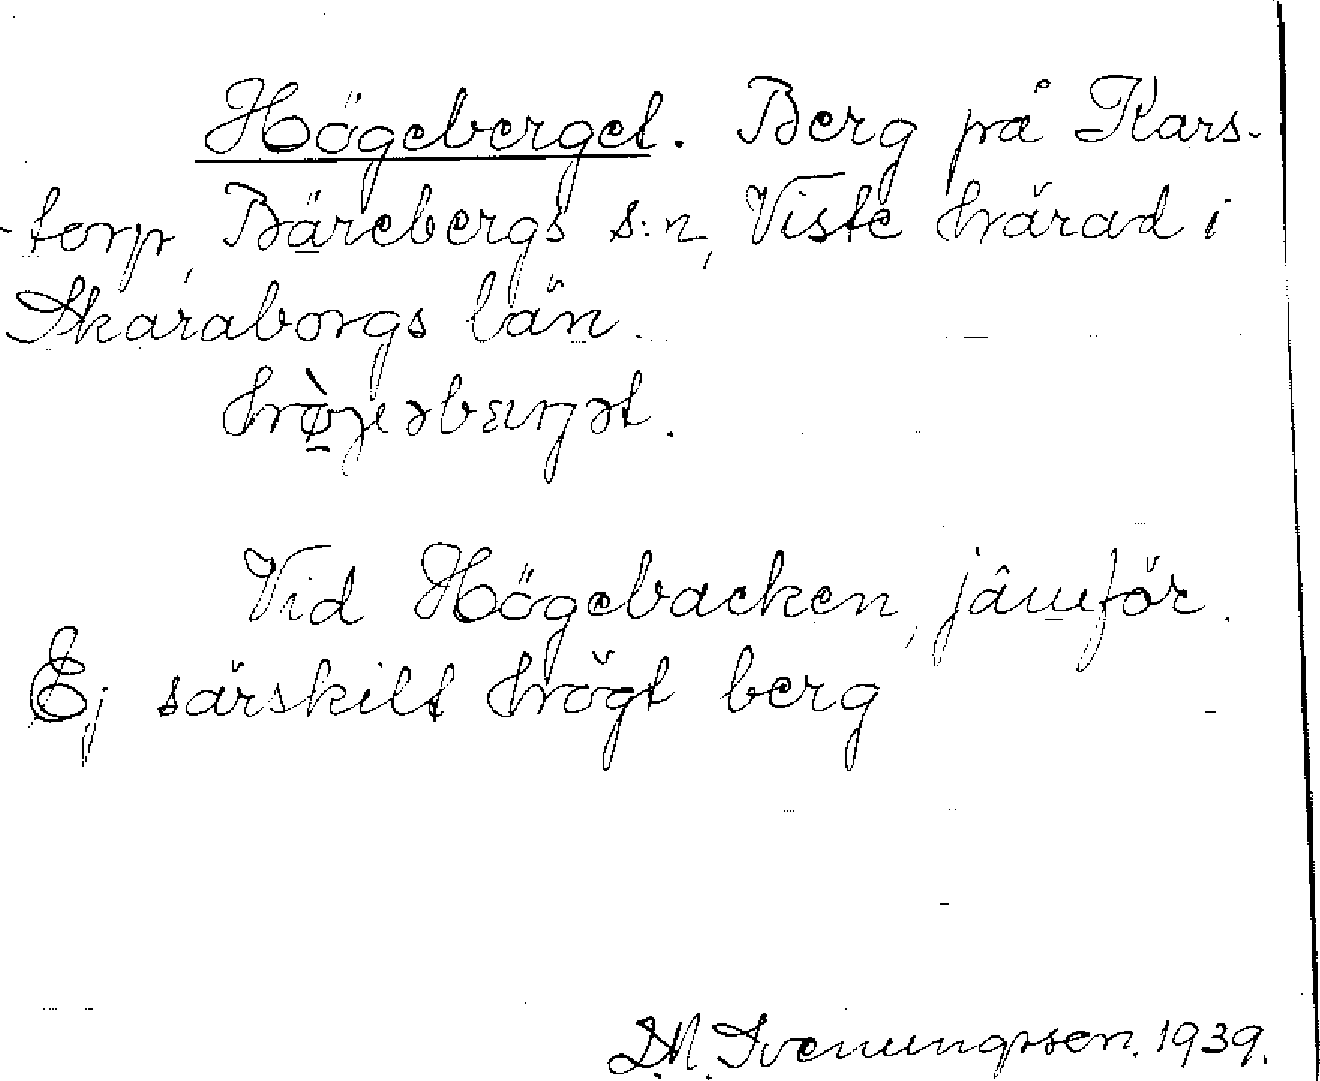 Högeberget. Berg på Kars-
torp, Bärebergs s:n, Viste härad i
Skaraborgs län.
Vid Högebacken, jämför.
Ej särskilt högt berg
D.N. Svenungsson. 1939.